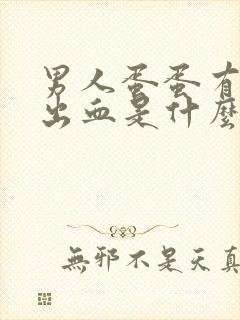 男人蛋蛋有
出血是什麼
無邪不是天真